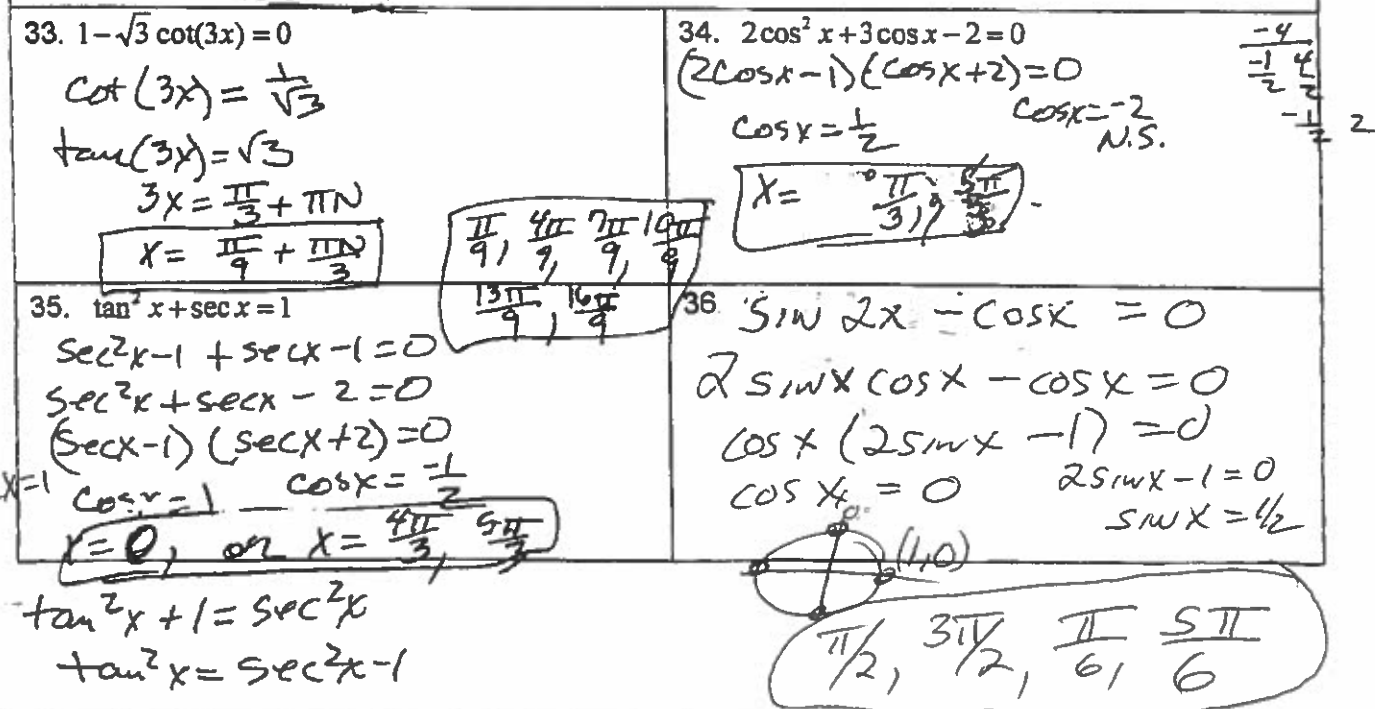 33. 1−√3 cot(3x) = 0
cot(3x) = 1/√3
tan(3x) = √3
3x = π/3 + πN
x = π/9 + πN/3
π/9, 4π/9, 7π/9, 10π/9
13π/9, 16π/9
34. 2cos² x+3cos x−2 = 0
(2cosx−1)(cosx+2)=0
cosx = 1/2
cosx=−2
N.S.
x = π/3, 5π/3
−4
−1/2 4/2
−1/2 2
35. tan² x+sec x = 1
sec²x−1 + secx−1=0
sec²x+secx−2=0
(secx−1)(secx+2)=0
x=1
cosx=1
cosx= −1/2
x=0, or x= 4π/3, 5π/3
tan²x+1=sec²x
tan²x=sec²x−1
36 sin 2x − cosx = 0
2sinx cosx − cosx = 0
cos x (2sinx −1) = 0
cos x = 0
2sinx−1=0
sinx=1/2
(1,0)
π/2, 3π/2, π/6, 5π/6